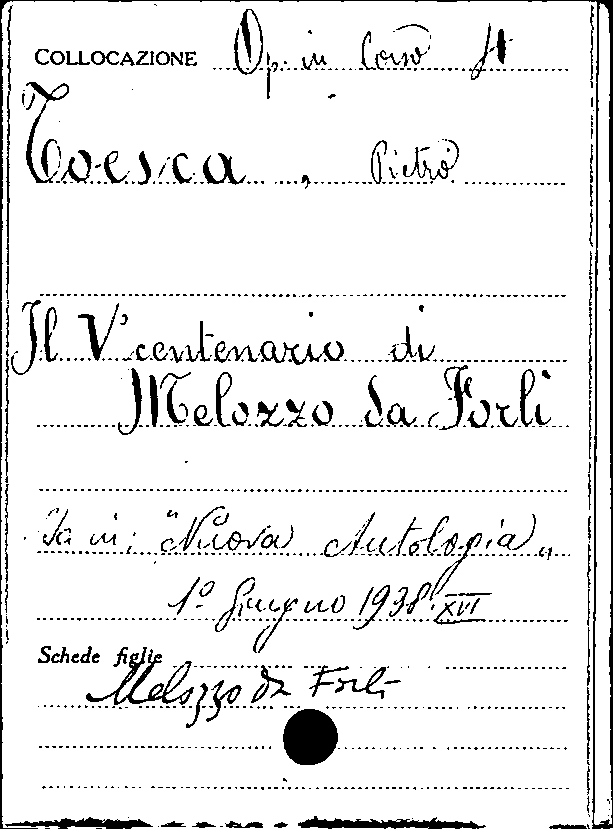 COLLOCAZIONE Op. in Corso
Toesca, Pietro
Il V° centenario di
Melozzo da Forlì
in: "Nuova Antologia"
1° Giugno 1938. XVI
Schede figlie
Melozzo da Forlì